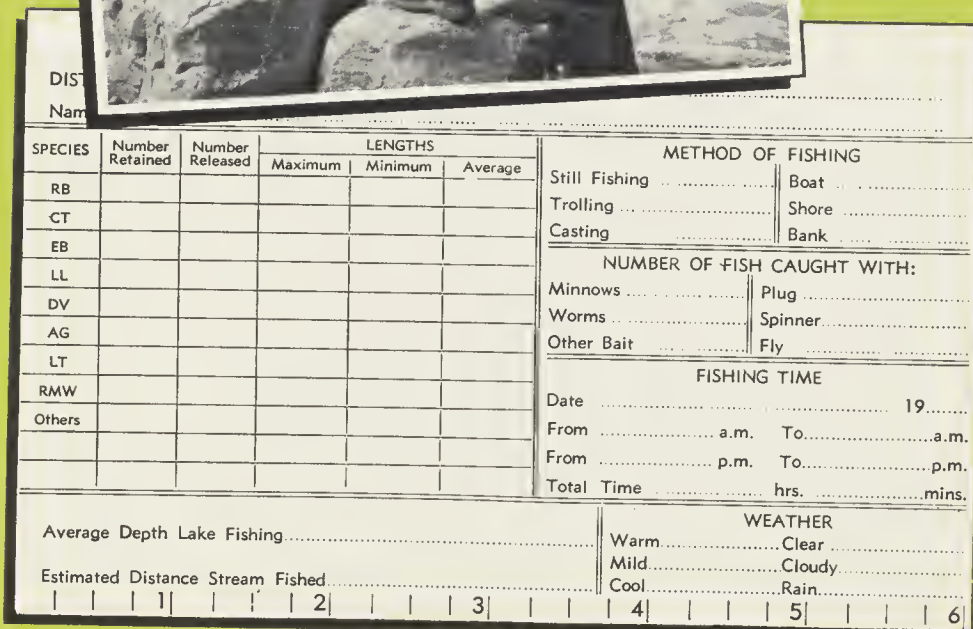 DIST
Nam
SPECIES Number Retained Number Released LENGTHS
Maximum Minimum Average
RB
CT
EB
LL
DV
AG
LT
RMW
Others
METHOD OF FISHING
Still Fishing .......... Boat ..........
Trolling .......... Shore ..........
Casting .......... Bank ..........
NUMBER OF FISH CAUGHT WITH:
Minnows .......... Plug ..........
Worms .......... Spinner ..........
Other Bait .......... Fly ..........
FISHING TIME
Date .......... 19......
From .......... a.m. To .......... a.m.
From .......... p.m. To .......... p.m.
Total Time .......... hrs. .......... mins.
Average Depth Lake Fishing ..........
Estimated Distance Stream Fished ..........
WEATHER
Warm .......... Clear ..........
Mild .......... Cloudy ..........
Cool .......... Rain ..........
1 2 3 4 5 6